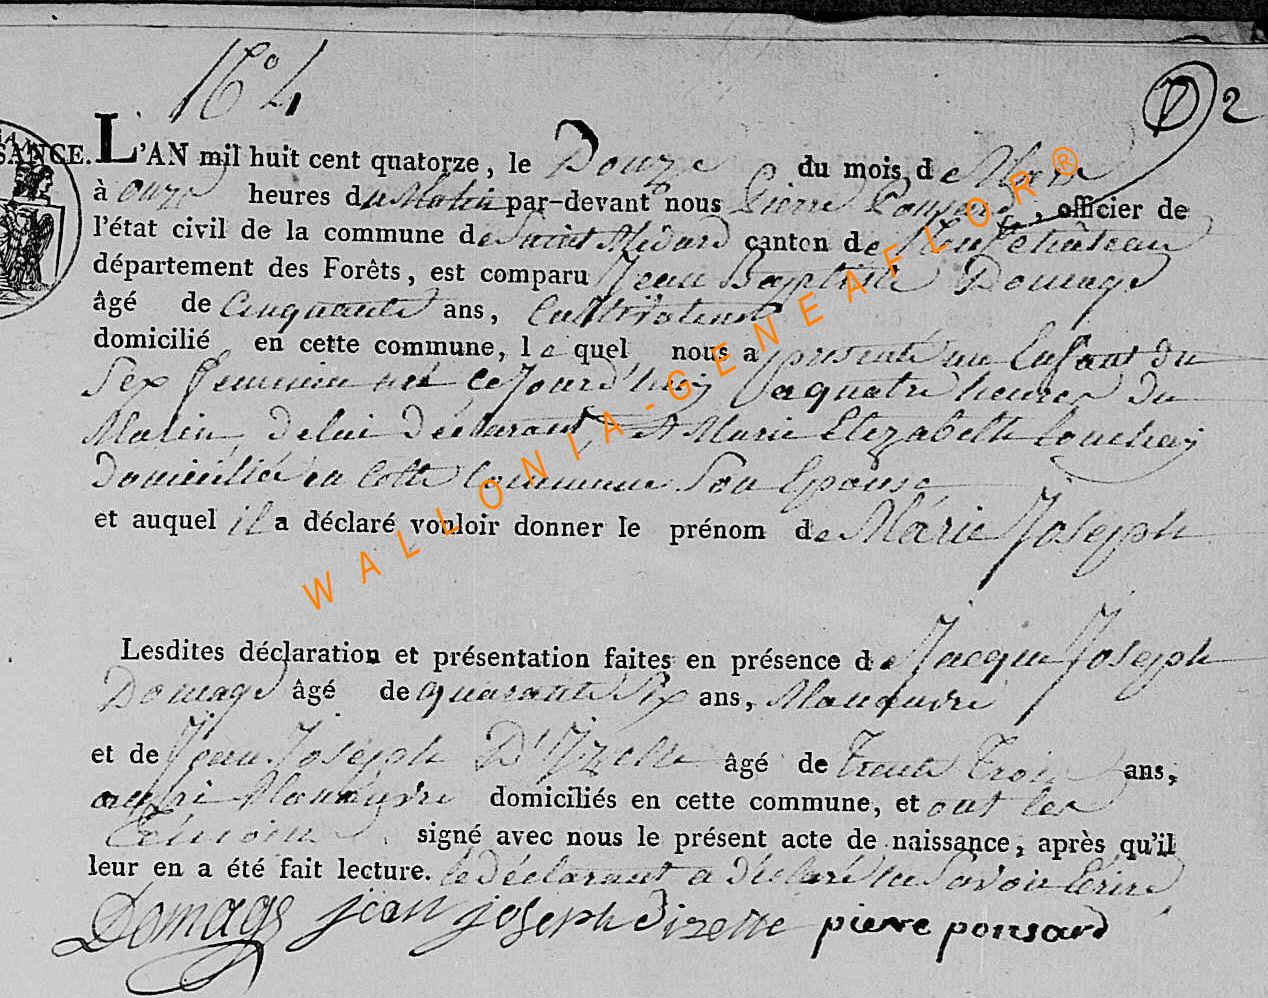 N.º 4
D 2
SANCE. L'AN mil huit cent quatorze, le Douze du mois de Mars
à onze heures du Matin par-devant nous Pierre Ponsard, officier de
l'état civil de la commune de Saint Médard canton de Neufchâteau
département des Forêts, est comparu Jean Baptiste Domage
âgé de Cinquante ans, Cultivateur
domicilié en cette commune, le quel nous a présenté un Enfant du
Sex femmin né Ce Jourd'huy a quatre heures du
Matin, de lui déclarant, Et Marie Elizabette
domiciliée en Cette Commune Son Epouse
et auquel il a déclaré vouloir donner le prénom de Marie Joseph
Lesdites déclaration et présentation faites en présence de Jacque Joseph
Domage âgé de quarante Six ans, Manouvre
et de Jean Joseph D'Jzelle âgé de Trente Trois ans,
aussi Manouvre domiciliés en cette commune, et ont les
Témoins signé avec nous le présent acte de naissance, après qu'il
leur en a été fait lecture. le déclarant a déclaré ne Savoir Ecrire
Domage jean joseph dizelle pierre ponsard
WALLONIA-GENEAFLOR®